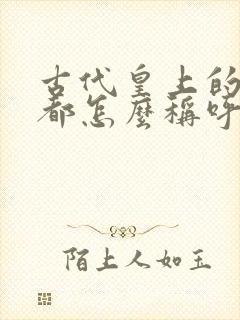 古代皇上的
都怎麼稱呼
陌上人如玉